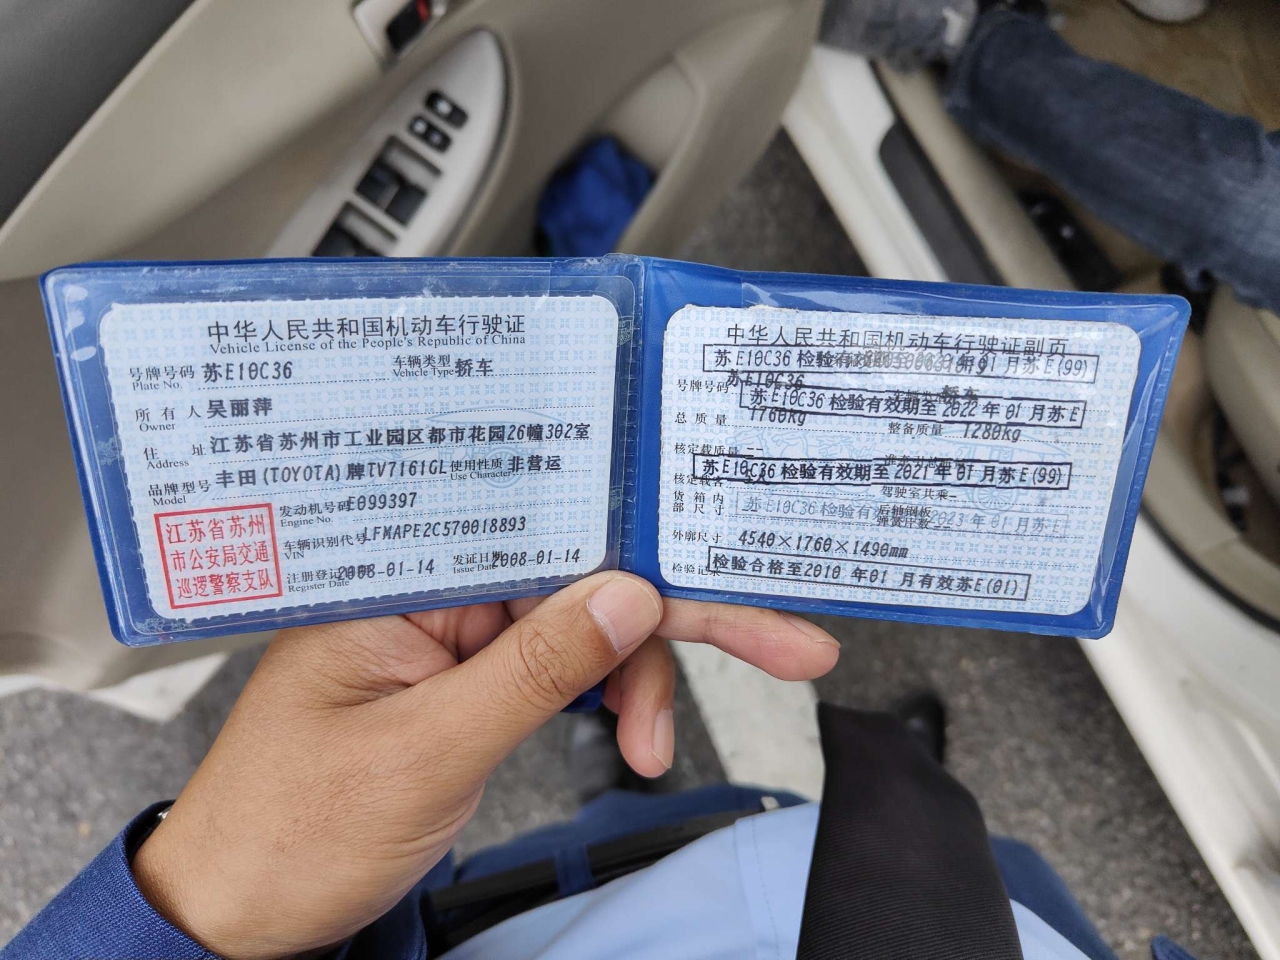 中华人民共和国机动车行驶证
Vehicle License of the People's Republic of China
号牌号码 苏E10C36 车辆类型 轿车
Plate No. Vehicle Type
所有人 吴丽萍
Owner
住址 江苏省苏州市工业园区都市花园26幢302室
Address
品牌型号 丰田(TOYOTA)牌TV7161GL 使用性质 非营运
Model Use Character
发动机号码 E099397
Engine No.
车辆识别代号 LFMAPE2C570018893
VIN
注册登记日期 2008-01-14 发证日期 2008-01-14
Register Date Issue Date
江苏省苏州
市公安局交通
巡逻警察支队
中华人民共和国机动车行驶证副页
苏E10C36 检验有效期至 月苏E(99)
号牌号码 苏E10C36 轿车
苏E10C36 检验有效期至 2022 年 01 月苏E
总质量 1760kg 整备质量 1280kg
核定载质量 --
苏E10C36 检验有效期至 2021 年 01 月苏E(99)
核定载客 驾驶室共乘 --
货箱内
部尺寸
后轴钢板
弹簧片数
苏E10C36 检验有效 2023 年 01 月苏E
外廓尺寸 4540×1760×1490mm
检验记录
检验合格至2010 年01 月有效苏E(01)